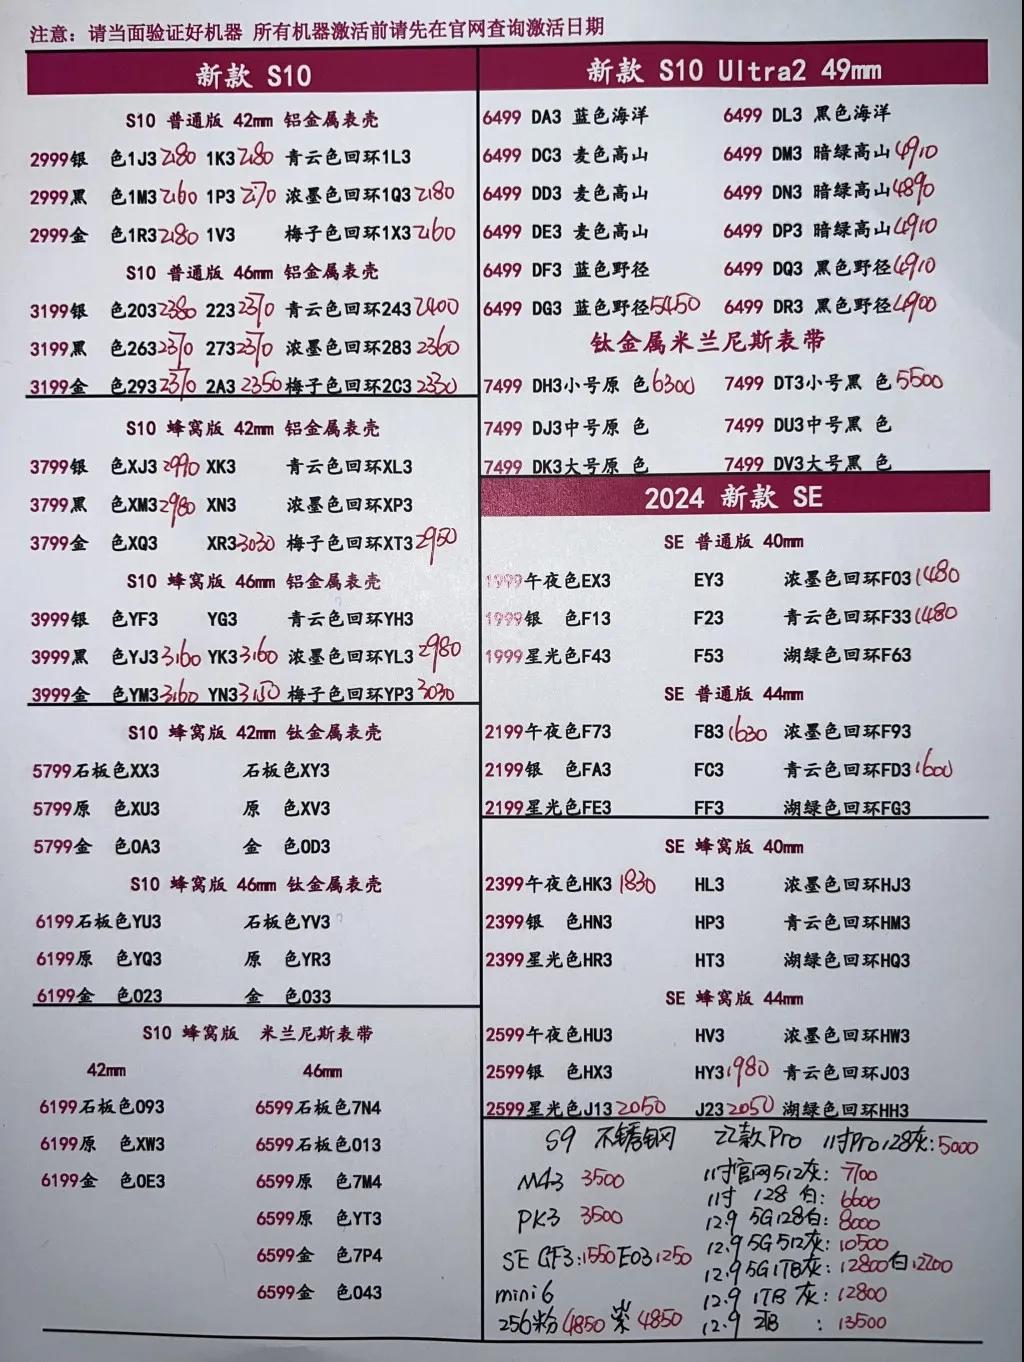 注意：请当面验证好机器 所有机器激活前请先在官网查询激活日期
新款 S10
S10 普通版 42mm 铝金属表壳
2999银 色1J3 2180 1K3 2180 青云色回环1L3
2999黑 色1M3 2160 1P3 2170 浓墨色回环1Q3 2180
2999金 色1R3 2180 1V3 梅子色回环1X3 2160
S10 普通版 46mm 铝金属表壳
3199银 色203 2380 223 2370 青云色回环243 2400
3199黑 色263 2370 273 2370 浓墨色回环283 2360
3199金 色293 2370 2A3 2350 梅子色回环2C3 2330
S10 蜂窝版 42mm 铝金属表壳
3799银 色XJ3 2990 XK3 青云色回环XL3
3799黑 色XM3 2980 XN3 浓墨色回环XP3
3799金 色XQ3 XR3 3030 梅子色回环XT3 2950
S10 蜂窝版 46mm 铝金属表壳
3999银 色YF3 YG3 青云色回环YH3
3999黑 色YJ3 3160 YK3 3160 浓墨色回环YL3 2980
3999金 色YM3 3160 YN3 3150 梅子色回环YP3 3030
S10 蜂窝版 42mm 钛金属表壳
5799石板色XX3 石板色XY3
5799原 色XU3 原 色XV3
5799金 色0A3 金 色0D3
S10 蜂窝版 46mm 钛金属表壳
6199石板色YU3 石板色YV3
6199原 色YQ3 原 色YR3
6199金 色023 金 色033
S10 蜂窝版 米兰尼斯表带
42mm 46mm
6199石板色093 6599石板色7N4
6199原 色XW3 6599石板色013
6199金 色0E3 6599原 色7M4
6599原 色YT3
6599金 色7P4
6599金 色043
新款 S10 Ultra2 49mm
6499 DA3 蓝色海洋 6499 DL3 黑色海洋
6499 DC3 麦色高山 6499 DM3 暗绿高山 4910
6499 DD3 麦色高山 6499 DN3 暗绿高山 4890
6499 DE3 麦色高山 6499 DP3 暗绿高山 4910
6499 DF3 蓝色野径 6499 DQ3 黑色野径 4910
6499 DG3 蓝色野径 5450 6499 DR3 黑色野径 4900
钛金属米兰尼斯表带
7499 DH3小号原 色 6300 7499 DT3小号黑 色 5500
7499 DJ3中号原 色 7499 DU3中号黑 色
7499 DK3大号原 色 7499 DV3大号黑 色
2024 新款 SE
SE 普通版 40mm
1999午夜色EX3 EY3 浓墨色回环F03 1480
1999银 色F13 F23 青云色回环F33 1480
1999星光色F43 F53 湖绿色回环F63
SE 普通版 44mm
2199午夜色F73 F83 1630 浓墨色回环F93
2199银 色FA3 FC3 青云色回环FD3 1600
2199星光色FE3 FF3 湖绿色回环FG3
SE 蜂窝版 40mm
2399午夜色HK3 1830 HL3 浓墨色回环HJ3
2399银 色HN3 HP3 青云色回环HM3
2399星光色HR3 HT3 湖绿色回环HQ3
SE 蜂窝版 44mm
2599午夜色HU3 HV3 浓墨色回环HW3
2599银 色HX3 HY3 1980 青云色回环J03
2599星光色J13 2050 J23 2050 湖绿色回环HH3
S9 不锈钢网 22款Pro 11寸Pro128灰：5000
M43 3500 11寸官网512灰：7100
11寸 128 白：6600
PK3 3500 12.9 5G128白：8000
12.9 5G 512灰：10500
SE GF3：1550 E03 1250 12.9 5G 1TB灰：12800 白12200
mini6 12.9 1TB 灰：12800
256粉 4850 紫 4850 12.9 2TB ：13500